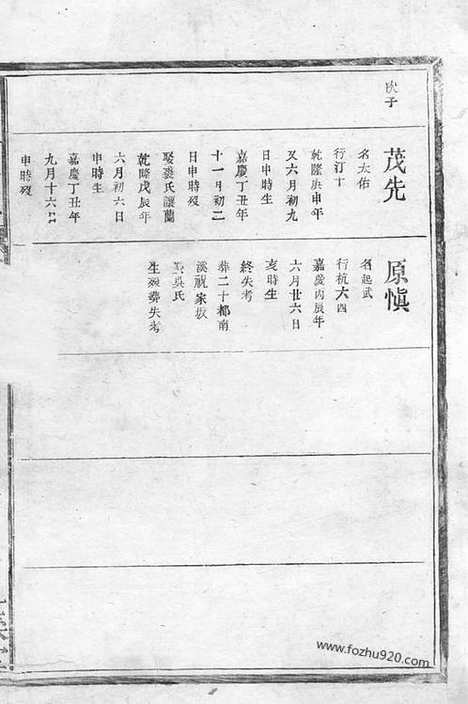 次子
茂先
名太佑
行汀十
乾隆庚申年
又六月初九
日申時生
嘉慶丁丑年
十一月初二
日申時歿
娶裘氏讓蘭
乾隆戊辰年
六月初六日
申時生
嘉慶丁丑年
九月十六日
申時歿
原慎
名起武
行杭六四
嘉慶丙辰年
六月廿六日
亥時生
終失考
葬二十都南
溪祝家坂
娶吳氏
生歿葬失考
www.fozhu920.com